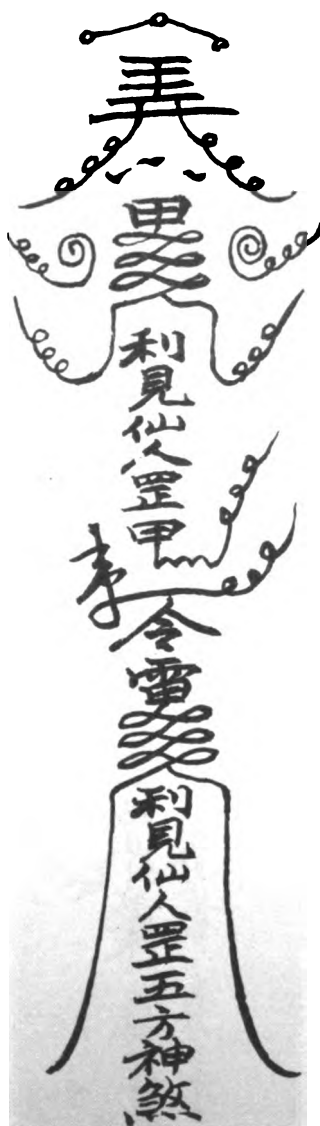 甲
利見仙人罡甲
令
雷
利見仙人罡五方神煞